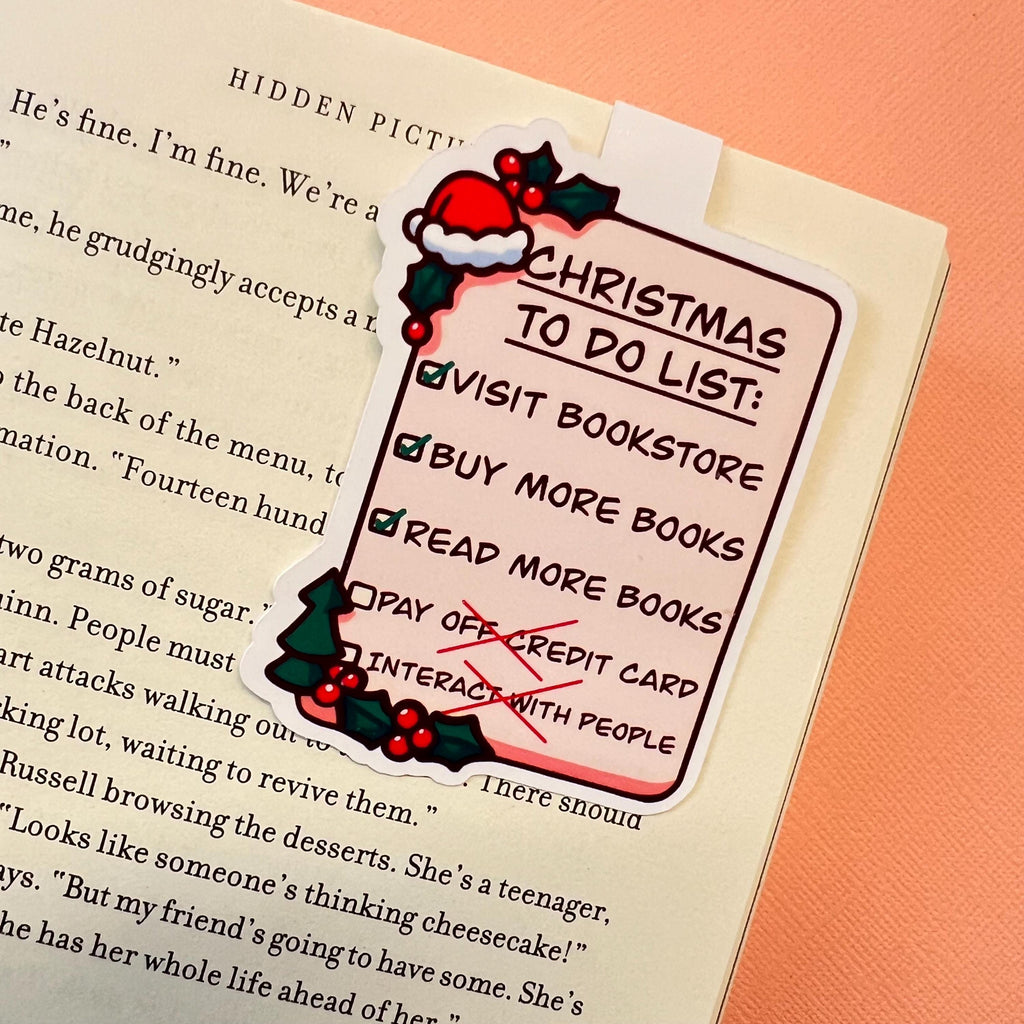 HIDDEN
He's fine. I'm fine. We're a
"
me, he grudgingly accepts a
te Hazelnut."
the back of the menu,
mation. "Fourteen
two grams of sugar."
uinn. People must
art attacks walking out to
king lot, waiting to revive them." There should
Russell browsing the desserts. She's a teenager,
"Looks like someone's thinking cheesecake!"
ays. "But my friend's going to have some. She's
he has her whole life ahead of her."
CHRISTMAS
TO DO LIST:
VISIT BOOKSTORE
BUY MORE BOOKS
READ MORE BOOKS
PAY OFF CREDIT CARD
INTERACT WITH PEOPLE